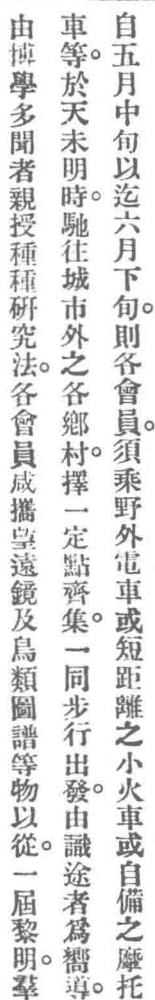 自五月中旬以迄六月下旬。則各會員。須乘野外電車或短距離之小火車或自備之摩托
車等。於天未明時。馳往城市外之各鄉村。擇一定點齊集。一同步行出發。由識途者爲嚮導。
由博學多聞者親授種種研究法。各會員咸攜望遠鏡及鳥類圖譜等物以從。一屆黎明。羣